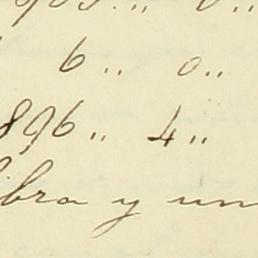 6 " 0 "
896 " 4 "
libra y un